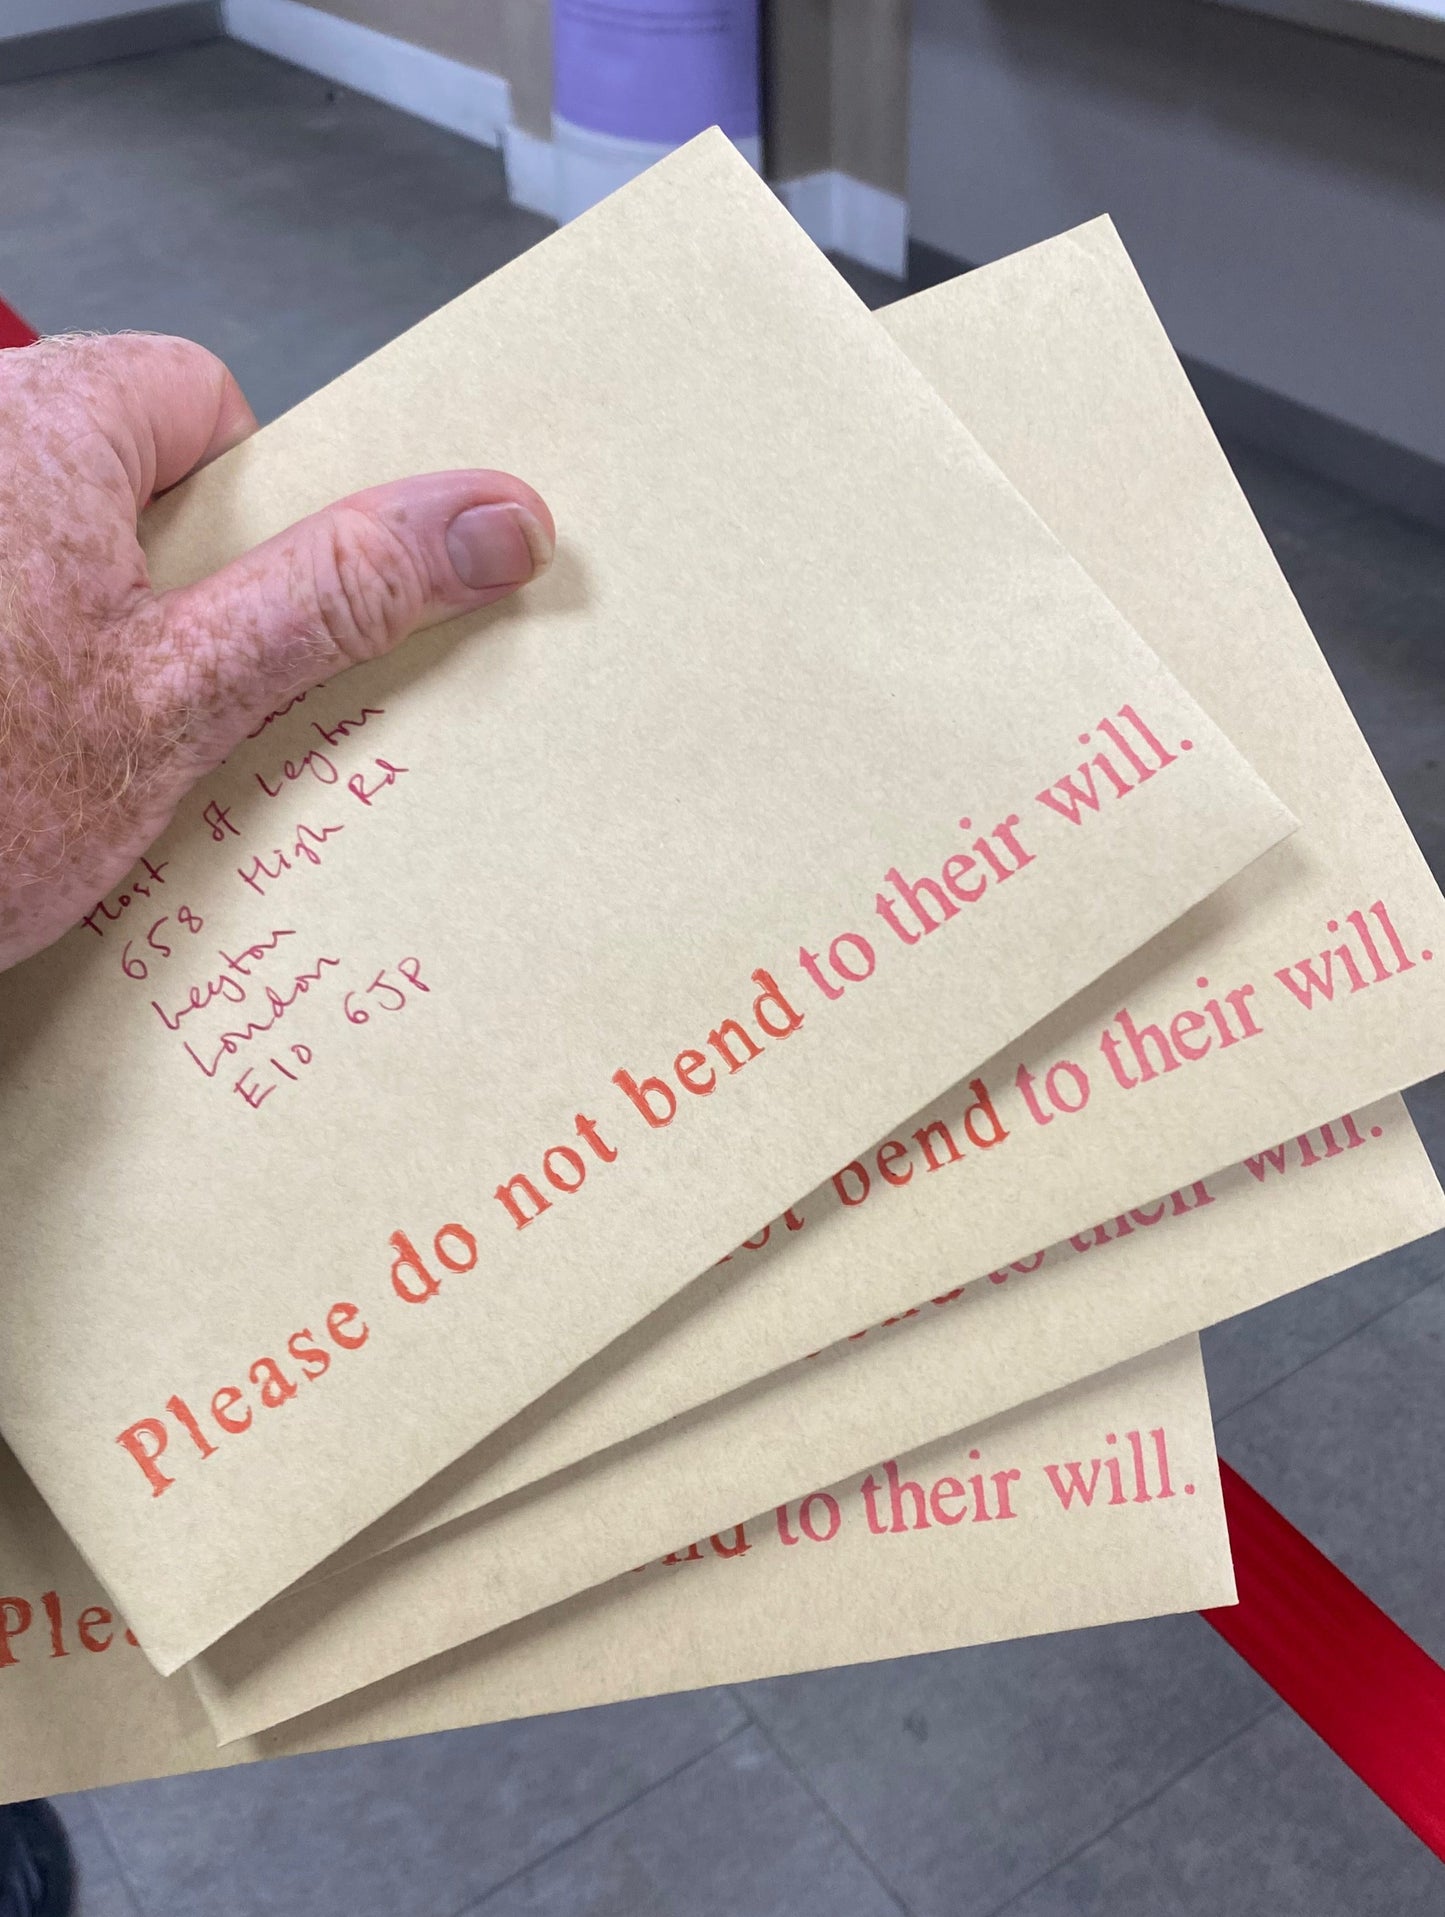 Host of Leyton
658 High Rd
Leyton
London
E10 6JP
Please do not bend to their will.
not bend to their will.
bend to their will.
Plea
end to their will.